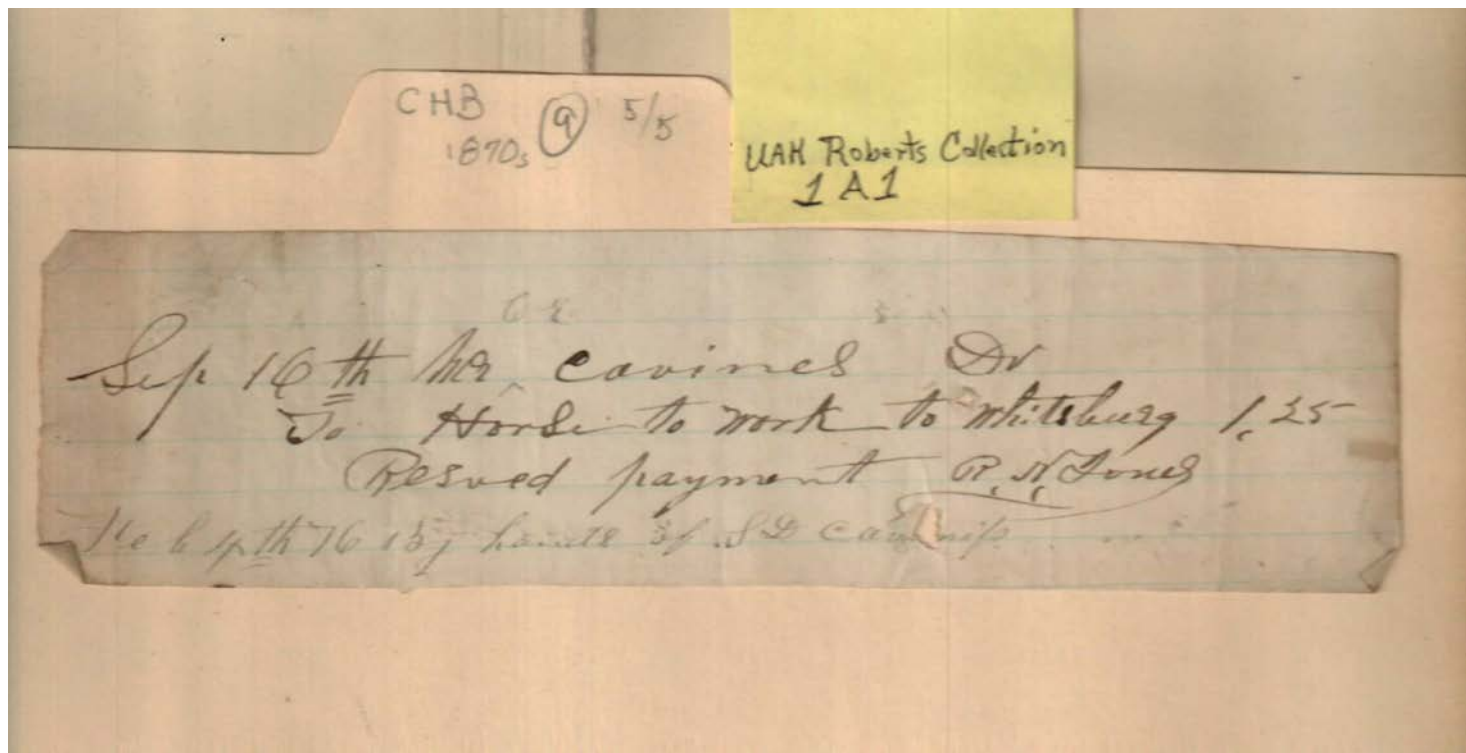 CHB 9 5/5
1870s
UAH Roberts Collection
1A1
Sep 16th Mr Cavines Dr
To Horse to work to Whitsburg 1,25
Resved payment R. N. Jones
4th 76 by hands of S D